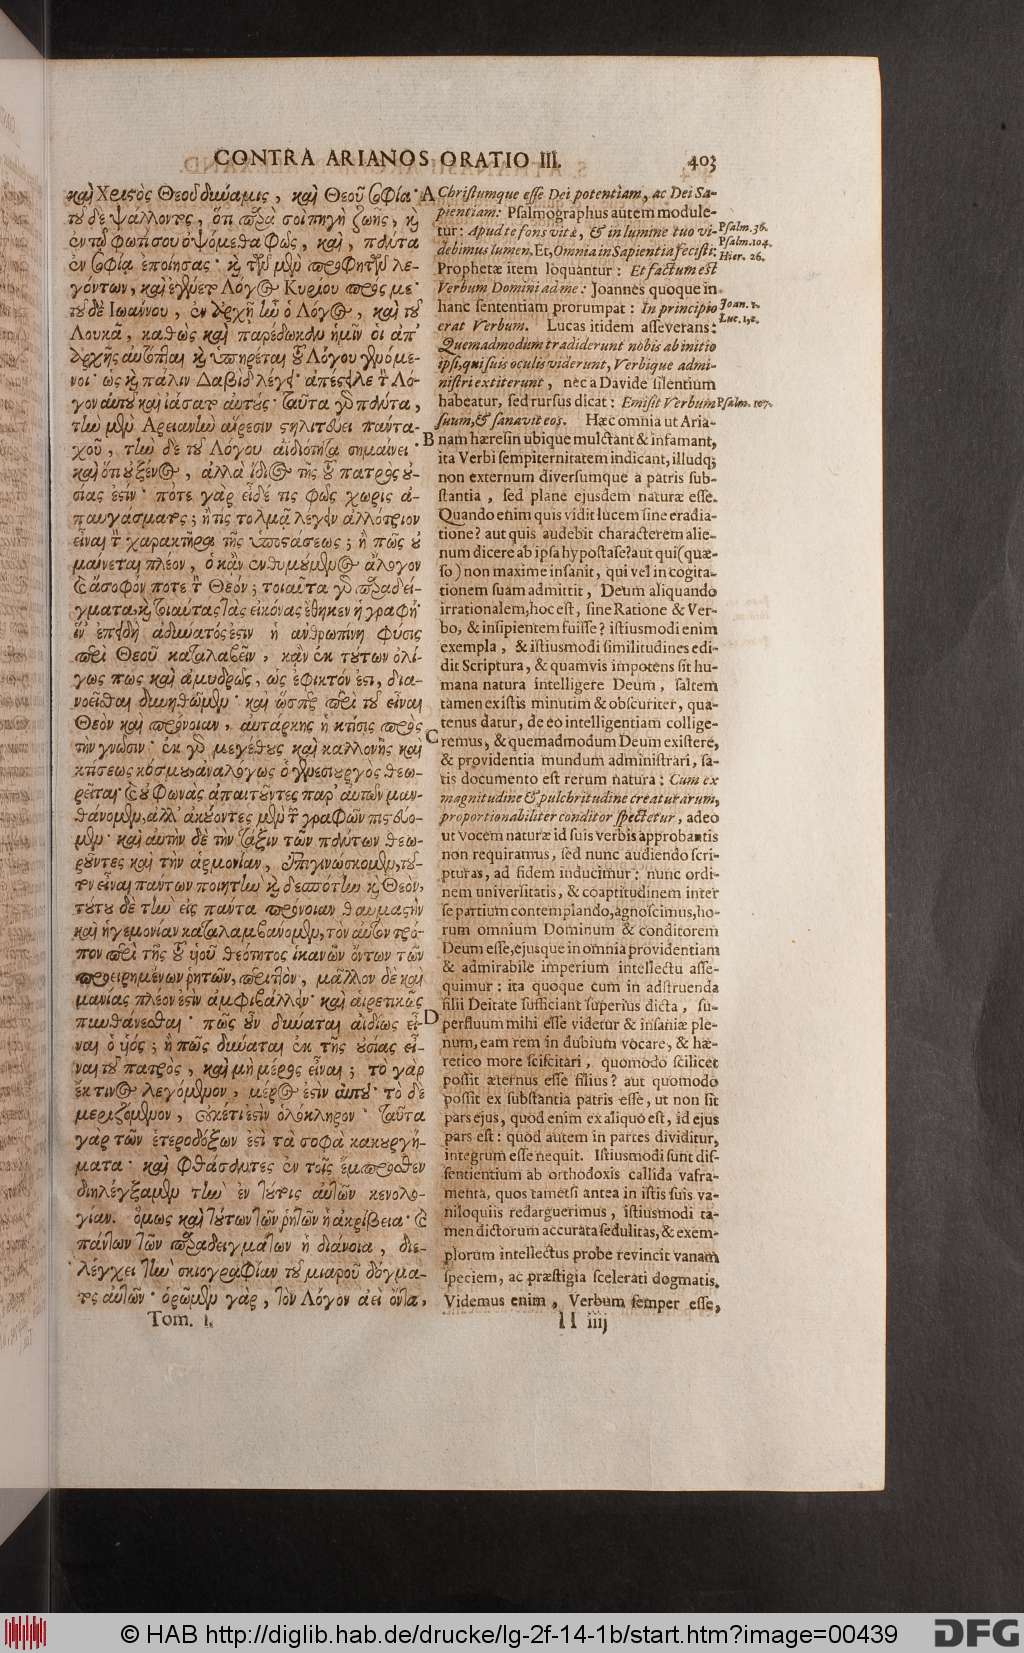 CONTRA ARIANOS ORATIO III. 403
καὶ Χριστὸς Θεοῦ δύναμις, καὶ Θεοῦ σοφία·
τοῦ δὲ ψάλλοντος, ὅτι παρὰ σοὶ πηγὴ ζωῆς, καὶ
ἐν τῷ φωτί σου ὀψόμεθα φῶς, καὶ, πάντα
ἐν σοφίᾳ ἐποίησας· καὶ τῶν μὲν προφητῶν λε-
γόντων, καὶ ἐγένετο Λόγος Κυρίου πρός με·
τοῦ δὲ Ἰωάννου, ἐν ἀρχῇ ἦν ὁ Λόγος, καὶ τοῦ
Λουκᾶ, καθὼς καὶ παρέδωκαν ἡμῖν οἱ ἀπ'
ἀρχῆς αὐτόπται καὶ ὑπηρέται τοῦ Λόγου γενόμε-
νοι· ὡς καὶ πάλιν Δαβὶδ λέγει· ἀπέστειλε τὸν Λό-
γον αὐτοῦ καὶ ἰάσατο αὐτούς· ταῦτα γὰρ πάντα,
τὴν μὲν Ἀρειανὴν αἵρεσιν στηλιτεύει πανταχοῦ
χοῦ, τὴν δὲ τοῦ Λόγου ἀϊδιότητα σημαίνει·
καὶ ὅτι οὐ ξένος, ἀλλὰ ἴδιος τῆς τοῦ πατρὸς οὐ-
σίας ἐστίν· πότε γὰρ εἶδέ τις φῶς χωρὶς ἀ-
παυγάσματος; ἢ τίς τολμᾷ λέγειν ἀλλότριον
εἶναι τὸν χαρακτῆρα τῆς ὑποστάσεως; ἢ πῶς οὐ
μαίνεται πλέον, ὁ κἂν ἐνθυμούμενος ἄλογον
καὶ ἄσοφόν ποτε τὸν Θεόν; τοιαῦτα γὰρ παραδεί-
γματα, καὶ τοιαύτας τὰς εἰκόνας ἔθηκεν ἡ γραφή·
ἵν' ἐπειδὴ ἀδύνατός ἐστιν ἡ ἀνθρωπίνη φύσις
περὶ Θεοῦ καταλαβεῖν, κἂν ἐκ τούτων ὀλί-
γως πως καὶ ἀμυδρῶς, ὡς ἐφικτόν ἐστι, δια-
νοεῖσθαι δυνηθῶμεν· καὶ ὥσπερ περὶ τοῦ εἶναι
Θεὸν καὶ πρόνοιαν, αὐτάρκης ἡ κτίσις πρὸς
τὴν γνῶσιν· ἐκ γὰρ μεγέθους καὶ καλλονῆς καὶ
κτίσεως κόσμου, ἀναλόγως ὁ γενεσιουργὸς θεω-
ρεῖται· καὶ οὐ φωνὰς ἀπαιτοῦντες παρ' αὐτῶν μαν-
θάνομεν, ἀλλ' ἀκούοντες μὲν τῶν γραφῶν πιστεύο-
μεν· καὶ αὐτὴν δὲ τὴν τάξιν τῶν πάντων θεω-
ροῦντες καὶ τὴν ἁρμονίαν, ἐπιγινώσκομεν, τοῦ-
τον εἶναι πάντων ποιητὴν καὶ δεσπότην καὶ Θεὸν,
τούτου δὲ τὴν εἰς πάντα πρόνοιαν θαυμαστὴν
καὶ ἡγεμονίαν καταλαμβάνομεν, τὸν αὐτὸν τρό-
πον περὶ τῆς τοῦ υἱοῦ θεότητος ἱκανῶν ὄντων τῶν
προειρημένων ῥητῶν, περιττὸν, μᾶλλον δὲ καὶ
μανίας πλέον ἐστὶν ἀμφιβάλλειν· καὶ αἱρετικῶς
πυνθάνεσθαι· πῶς οὖν δύναται ἀϊδίως εἶ-
ναι ὁ υἱός; ἢ πῶς δύναται ἐκ τῆς οὐσίας εἶ-
ναι τοῦ πατρὸς, καὶ μὴ μέρος εἶναι; τὸ γὰρ
ἔκ τινος λεγόμενον, μέρος ἐστὶν αὐτοῦ· τὸ δὲ
μεριζόμενον, οὐκέτι ἐστὶν ὁλόκληρον· ταῦτα
γὰρ τῶν ἑτεροδόξων ἐστὶ τὰ σοφὰ κακουργή-
ματα· καὶ φθάσαντες ἐν τοῖς ἔμπροσθεν
διηλέγξαμεν τὴν ἐν τούτοις αὐτῶν κενολο-
γίαν. ὅμως καὶ τούτων τῶν ῥητῶν ἡ ἀκρίβεια· καὶ
πάντων τῶν παραδειγμάτων ἡ διάνοια, διε-
λέγχει τὴν σκιογραφίαν τοῦ μιαροῦ δόγμα-
τος αὐτῶν· ὁρῶμεν γὰρ, τὸν Λόγον ἀεὶ ὄντα,
Tom. I.
A
B
C
D
Christumque esse Dei potentiam, ac Dei Sa-
pientiam: Psalmographus autem module-
tur: Apud te fons vitæ, & in lumine tuo vi-
debimus lumen. Et, Omnia in Sapientia fecisti:
Prophetæ item loquantur: Et factum est
Verbum Domini ad me: Joannes quoque in
hanc sententiam prorumpat: In principio
erat Verbum. Lucas itidem asseverans:
Quemadmodum tradiderunt nobis ab initio
ipsi, qui suis oculis viderunt, Verbique admi-
nistri extiterunt, nec a Davide silentium
habeatur, sed rursus dicat: Emisit Verbum
suum, & sanavit eos. Hæc omnia ut Aria-
nam hæresin ubique mulctant & infamant,
ita Verbi sempiternitatem indicant, illudq;
non externum diversumque a patris sub-
stantia, sed plane ejusdem naturæ esse.
Quando enim quis vidit lucem sine eradia-
tione? aut quis audebit characterem alie-
num dicere ab ipsa hypostase? aut qui (quæ-
so) non maxime insanit, qui vel in cogita-
tionem suam admittit, Deum aliquando
irrationalem, hoc est, sine Ratione & Ver-
bo, & insipientem fuisse? istiusmodi enim
exempla, & istiusmodi similitudines edi-
dit Scriptura, & quamvis impotens sit hu-
mana natura intelligere Deum, saltem
tamen ex istis minutim & obscuriter, qua-
tenus datur, de eo intelligentiam collige-
remus, & quemadmodum Deum existere,
& providentia mundum administrari, sa-
tis documento est rerum natura: Cum ex
magnitudine & pulchritudine creaturarum,
proportionabiliter conditor spectetur, adeo
ut vocem naturæ id suis verbis approbantis
non requiramus, sed nunc audiendo scri-
pturas, ad fidem inducimur: nunc ordi-
nem universitatis, & coaptitudinem inter
se partium contemplando, agnoscimus, ho-
rum omnium Dominum & conditorem
Deum esse, ejusque in omnia providentiam
& admirabile imperium intellectu asse-
quimur: ita quoque cum in adstruenda
filii Deitate sufficiant superius dicta, su-
perfluum mihi esse videtur & insaniæ ple-
num, eam rem in dubium vocare, & hæ-
retico more sciscitari, quomodo scilicet
possit æternus esse filius? aut quomodo
possit ex substantia patris esse, ut non sit
pars ejus, quod enim ex aliquo est, id ejus
pars est: quod autem in partes dividitur,
integrum esse nequit. Istiusmodi sunt dis-
sentientium ab orthodoxis callida vafra-
menta, quos tametsi antea in istis suis va-
niloquiis redarguerimus, istiusmodi ta-
men dictorum accurata sedulitas, & exem-
plorum intellectus probe revincit vanam
speciem, ac præstigia scelerati dogmatis.
Videmus enim, Verbum semper esse,
Ll iiij
Psalm. 36.
Psalm. 104.
Hier. 26.
Joan. 1.
Luc. 1, 2.
Psalm. 107.
© HAB http://diglib.hab.de/drucke/lg-2f-14-1b/start.htm?image=00439
DFG